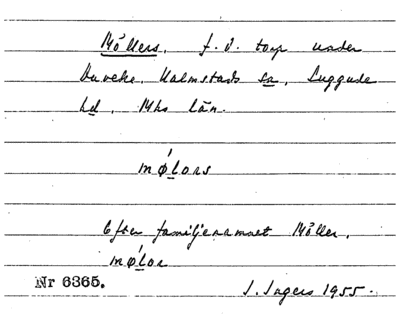 Möllers, f. d. torp under
Duveke, Halmstads sn, Luggude
hd, Mhs län.
møl̲ors
Efter familjenamnet Möller,
møl̲or
Nr 6365.
J. Ingers 1955.